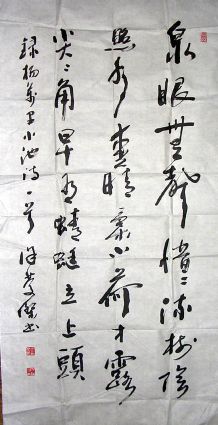 泉眼無聲惜細流樹陰
照水愛晴柔小荷才露
尖〻角早有蜻蜓立上頭
録楊萬里小池詩一首 書